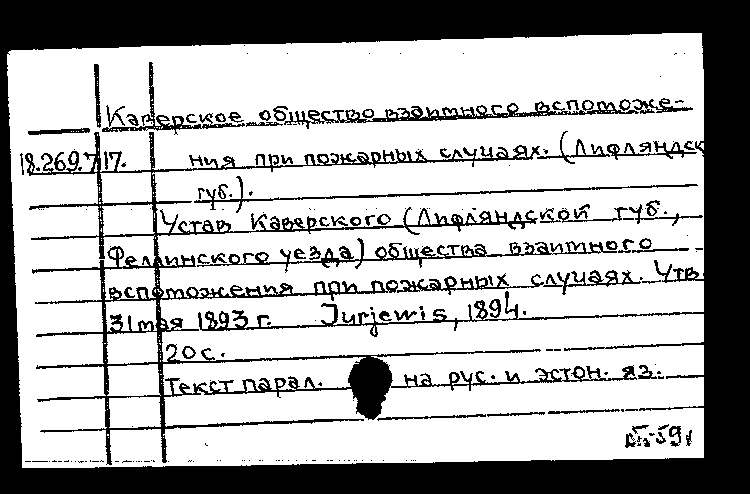 Каверское общество взаимного вспоможе-
18.269.7.17. ния при пожарных случаях. (Лифляндск
губ.).
Устав Каверского (Лифляндской губ.,
Феллинского уезда) общества взаимного
вспоможения при пожарных случаях. Утв.
31 мая 1893 г. Jurjewis, 1894.
20 с.
Текст парал. на рус. и эстон. яз.